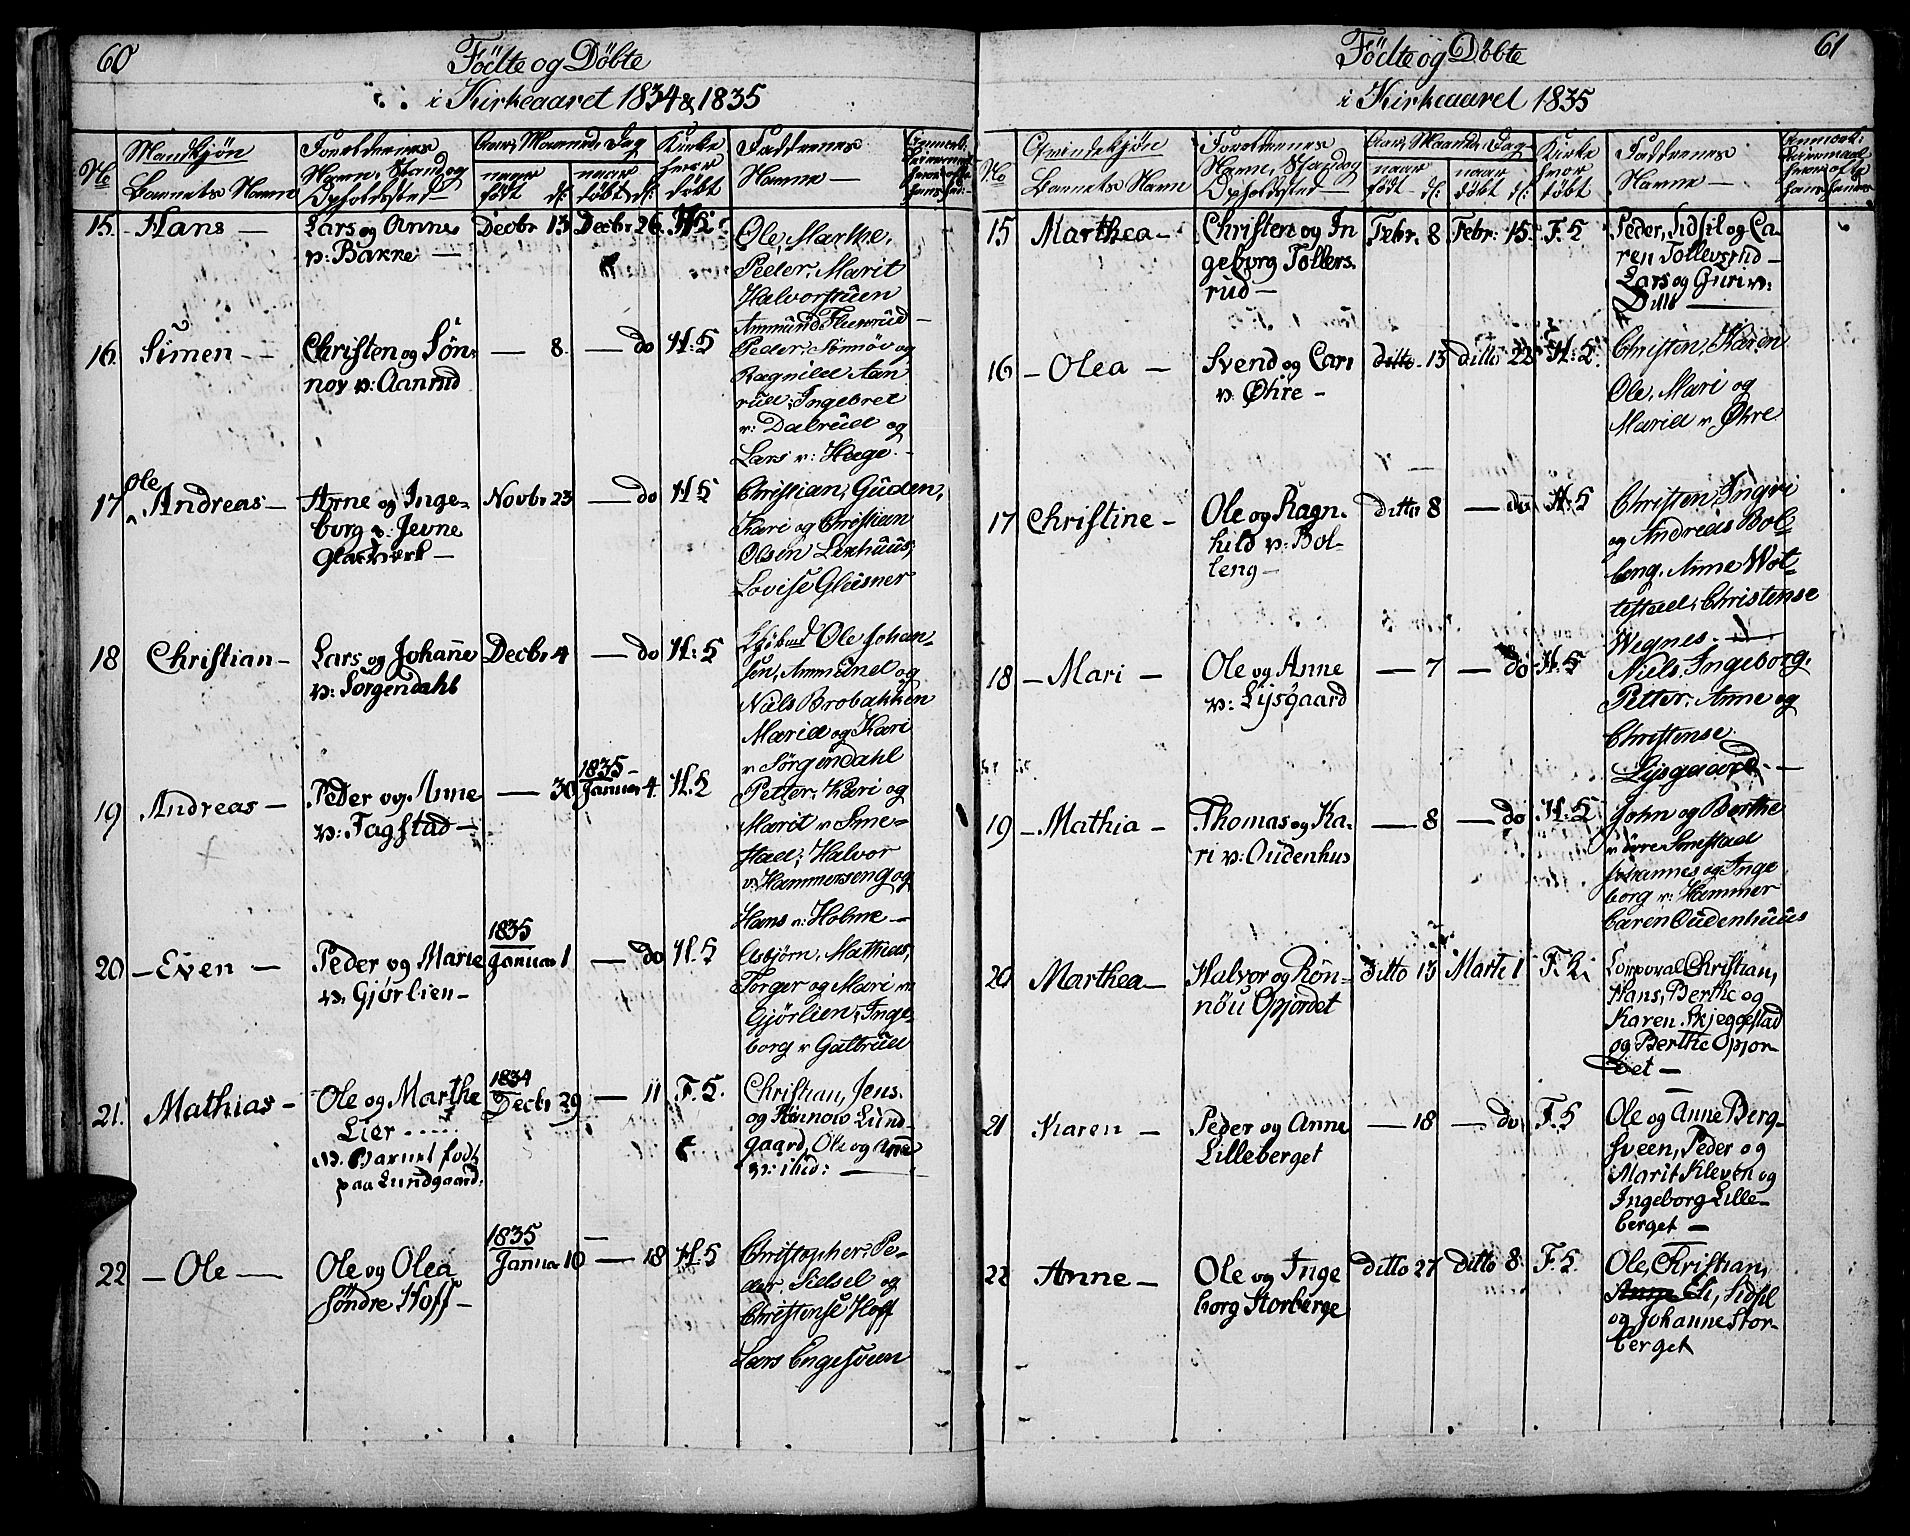 60
Födte og Döbte
i Kirkeaaret 1834 & 1835
No
Mandkjön
Barnets Navn
Foreldrenes
Navn, Stand og
Opholdssted
Aar, Maaned, Dag
naar
födt d:
naar
döbt d:
Kirke
hvor
döbt
Faddrenes
Navne —
15. Hans —
Lars og Anne
v: Bakke —
Decbr 13 Decbr 26 H: 5
Ole, Marthe,
Peder, Marit
Halvorstuen
Ammund Fluerud —
16. Simen —
Christen og Sön-
nov v: Aanrud
— 8. — do H: 5
Peder, Sönnöv og
Ragnild Aan
rud; Ingebret
v: Dalrud og
Lars v: Hage.
17 Ole Andreas —
Arne og Inge-
borg v: Jevne
Glasværk —
Novbr 23 — do H 5
Christian, Guden,
Kari og Christian
Olsen Lexhuus,
Lovise Glæsner
18 Christian —
Lars og Johane
v: Sörgendahl
Decbr 4 — do H: 5
Ole Johan-
sen, Ammund og
Niels Brobakken
Maria og Kari
v Sörgendahl
19 Andreas —
Peder og Anne
v: Fagstad —
— 30 1835 Januar 4. H. 5
Petter, Kari og
Marit v Sme-
stad; Halvor
v: Hammerseng og
Hans v: Holme —
20 — Even —
Peder og Marie
v: Gjörlien —
1835
Januar 1 — do H. 5
Asbjörn, Mathias,
Torger og Mari v
Gjörlien; Inge-
borg v Galtrud
21. Mathias —
Ole og Marthe
Lier
N. Barnet födt
paa Lundgaard.
1834
Decbr 29 — 11 F. 5.
Christian, Jens
og Rönnow Lund-
gaard, Ole og Anne
v: ibid: —
22 — Ole —
Ole og Olea
Söndre Hoff —
1835
Januar 10 — 18 H. 5
Christopher, Pe-
der, Sidsel og
Christense Hoff
Lars Engesveen
61
Födte og Döbte
i Kirkeaaret 1835
No
Qvindekjön
Barnets Navn
Foreldrenes
Navne, Stand og
Opholdssted
Aar, Maaned, Dag
naar
födt d:
naar
döbt d:
Kirke
hvor
döbt
Faddrenes
Navne —
15 Marthea —
Christen og In
geborg Tollers
rud —
Febr. 8 Febr. 15. F. 5
Peder, Sidsil og Ca-
ren Tollevsrud —
Lars og Guri v:
16 — Olea —
Svend og Cari
v: Økre —
ditto 13 ditto 22 H: 5.
Christen, Karen
Ole, Mari og
Marid v, Økre
17 Christine —
Ole og Ragn-
hild v: Bol-
leng —
ditto 8 — do H. 5
Christen, Ingri
og Andreas Bol-
leng. Anne Wol-
lestad, Christense
Wegnes. —
18 — Mari —
Ole og Anne
v: Lysgaard
— 7 — do H. 5
Niels, Ingeborg,
Petter, Anne og
Christense
Lysgaard —
19 — Mathia —
Thomas og Ka-
ri v: Oudenhus
— 8 — do H. 5
John og Berthe
v övre Smestad
Johannes og Inge
borg v: Hammer
Caren Oudenhuus
20 Marthea —
Halvor og Rön-
nöu Opjordet
ditto 15 Marti 1 F. 5.
Corporal Christian,
Hans, Berthe og
Karen. Skjeggestad
og Berthe Opjor-
det —
21 Karen —
Peder og Anne
Lilleberget
— 18 — do F. 5
Ole og Anne Berg-
sveen, Peder og
Marit Kleven og
Ingeborg Lille-
berget —
22 Anne —
Ole og Inge
borg Storberge
ditto 27 ditto 8. F. 5.
Ole, Christian,
Anne Eli, Sidsil
og Johanne Stor-
berget